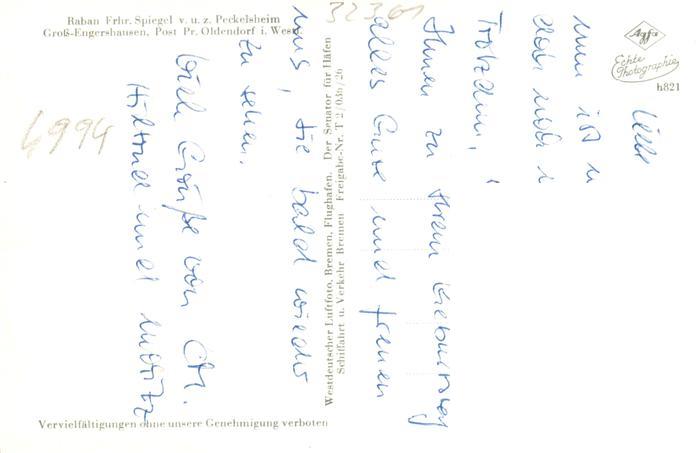 Raban Frhr. Spiegel v. u. z. Peckelsheim
Groß-Engershausen, Post Pr. Oldendorf i. Westf.
32361
4994
Agfa
Echte
Photographie
h821
Westdeutscher Luftfoto, Bremen, Flughafen. Der Senator für Häfen
Schiffahrt u. Verkehr Bremen Freigabe-Nr. T 2/036/26
nun ist
doch noch
Trotzdem,
Ihnen zu Ihrem Geburtstag
alles Gute und freuen
uns, Sie bald wieder
zu sehen.
Viele Grüße von
und
Vervielfältigungen ohne unsere Genehmigung verboten